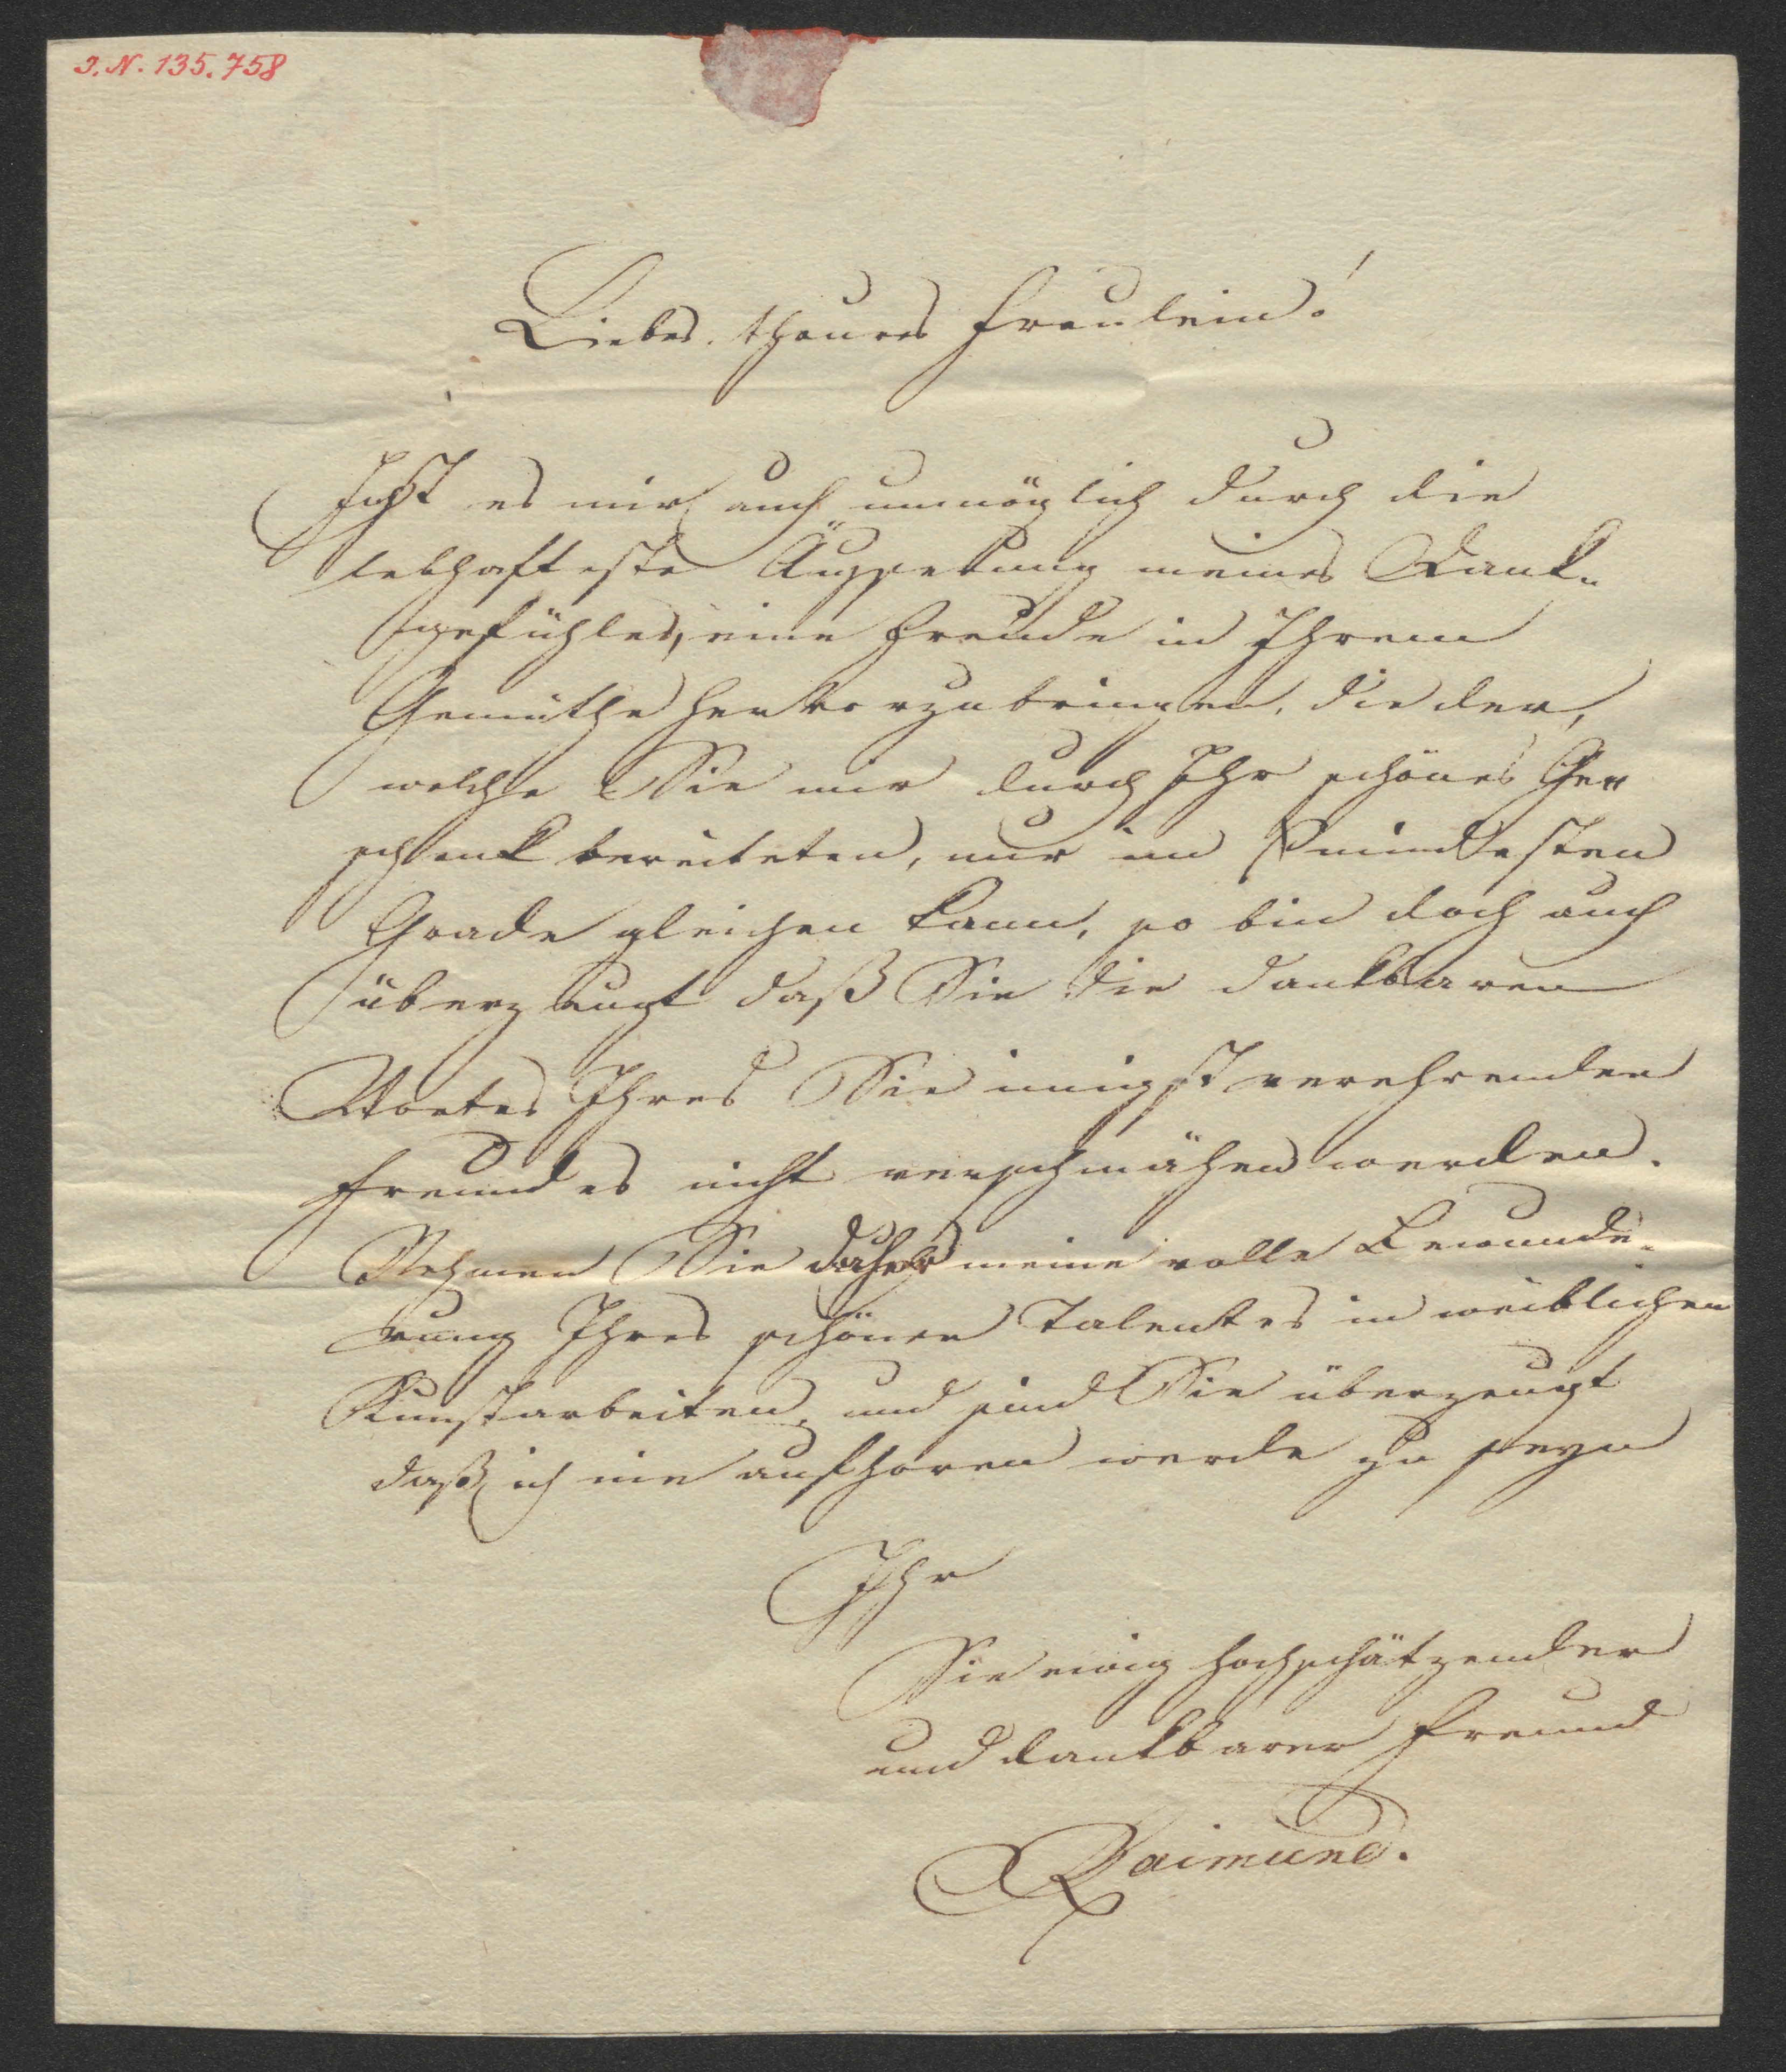 I.N. 135.758
Liebes theures Fräulein!
Ist es mir auch unmöglich durch die
lebhafteste Äußerung meines Dank-
gefühles, eine Freude in Ihrem
Gemüthe hervorzubringen, die der,
welche Sie mir durch Ihr schönes Ge-
schenk bereiteten, nur im mindesten
Grade gleichen kann, so bin doch auch
überzeugt daß Sie die dankbaren
Worte Ihres Sie innigst verehrenden
Freundes nicht verschmähen werden.
Nehmen Sie daher meine volle Bewunde-
rung Ihres schönen Talentes in weiblichen
Kunstarbeiten, und sind Sie überzeugt
daß ich nie aufhören werde zu seyn
Ihr
Sie ewig hochschätzender
und dankbarer Freund
Raimund.